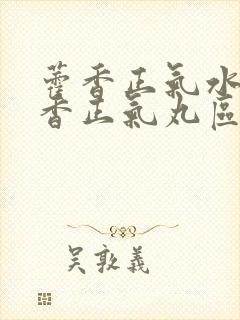 藿香正氣水
香正氣丸區
吴敦義